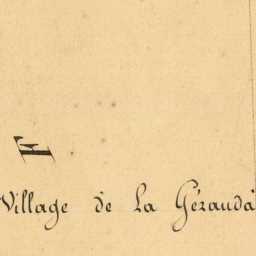 F
Village de La Gérauda